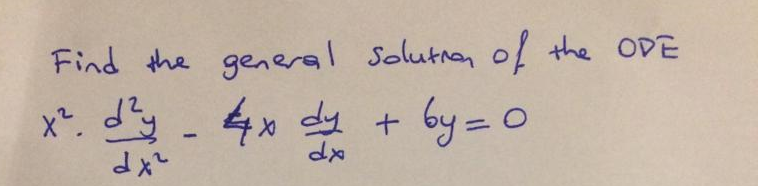 Find the general solution of the ODE
x². d²y/dx² - 4x dy/dx + 6y = 0